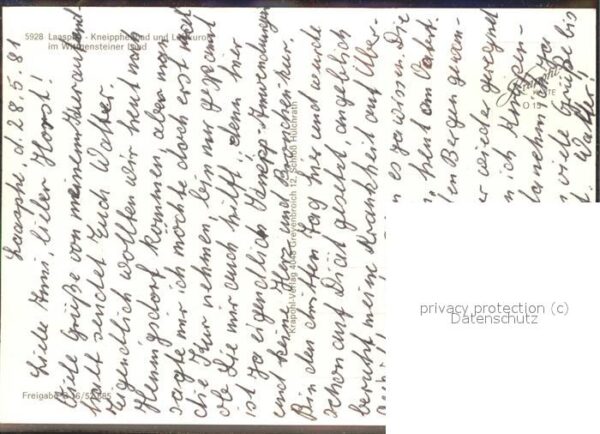 5928 Laasphe - Kneippheilbad und Luftkurort
im Wittgensteiner Land
Laasphe d 28.5.81
Liebe Anni, lieber Horst!
Viele Grüße von meinem Kuraufent
halt sendet Euch Walter.
Eigendlich wollten wir heut nach
Hennigsdorf kommen, aber man
sagte mir ich möchte doch erst mal
die Kur nehmen, bin nur gespannt
ob Sie mir auch hilft, denn hier
ist ja eigendlich Kneipp-Anwendungen
und keine Herz und Bauch-kur.
Bin den dritten Tag hier und wurde
schon auf Diät gesetzt, angeblich
beruht meine Krankheit auf Über-
en es ja wissen. Die
heut am Vaht.
den Bergen gewan-
wieder geregnet
ich
nehm
viele Grüße bis
Walter!
Krapohl-Verlag 4048 Grevenbroich 12, Schloß Hülchrath
KARTE
Freigabe
privacy protection (c)
Datenschutz